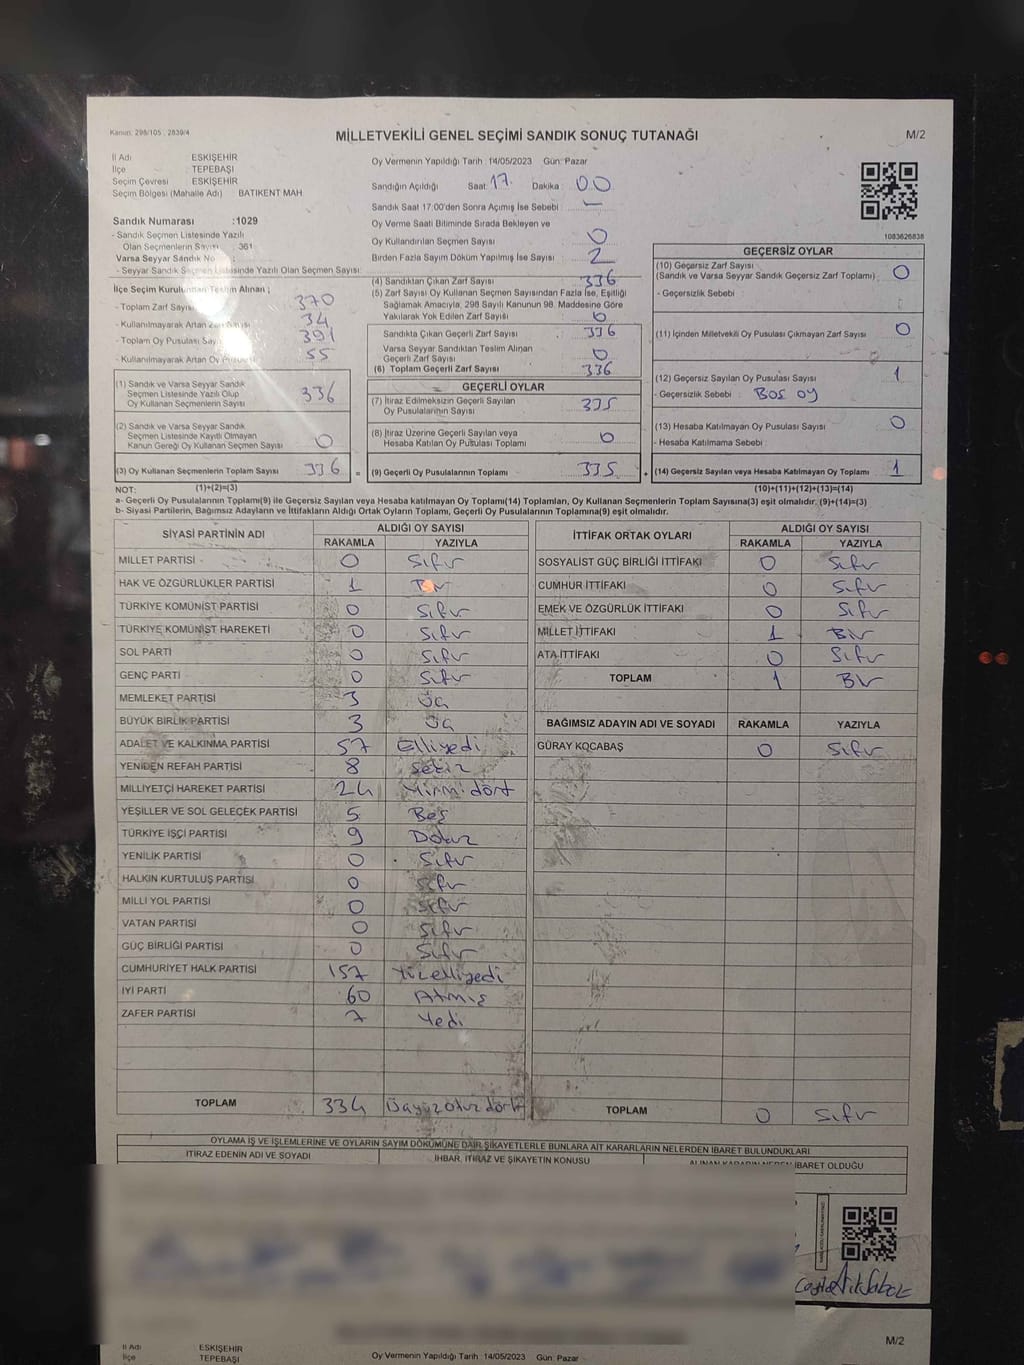 Kanun: 298/105 , 2839/4
MİLLETVEKİLİ GENEL SEÇİMİ SANDIK SONUÇ TUTANAĞI
M/2
İl Adı ESKİŞEHİR
İlçe TEPEBAŞI
Seçim Çevresi ESKİŞEHİR
Seçim Bölgesi (Mahalle Adı) BATIKENT MAH.
Sandık Numarası :1029
- Sandık Seçmen Listesinde Yazılı
Olan Seçmenlerin Sayısı : 361
Varsa Seyyar Sandık No
- Seyyar Sandık Seçmen Listesinde Yazılı Olan Seçmen Sayısı:
İlçe Seçim Kurulundan Teslim Alınan ;
- Toplam Zarf Sayısı 370
- Kullanılmayarak Artan Zarf Sayısı 34
- Toplam Oy Pusulası Sayısı 391
- Kullanılmayarak Artan Oy Pusulası 55
(1) Sandık ve Varsa Seyyar Sandık
Seçmen Listesinde Yazılı Olup
Oy Kullanan Seçmenlerin Sayısı 336
(2) Sandık ve Varsa Seyyar Sandık
Seçmen Listesinde Kayıtlı Olmayan
Kanun Gereği Oy Kullanan Seçmen Sayısı 0
(3) Oy Kullanan Seçmenlerin Toplam Sayısı 336
Oy Vermenin Yapıldığı Tarih : 14/05/2023 Gün: Pazar
Sandığın Açıldığı Saat: 17. Dakika : 00
Sandık Saat 17:00'den Sonra Açımış İse Sebebi : –
Oy Verme Saati Bitiminde Sırada Bekleyen ve
Oy Kullandırılan Seçmen Sayısı 0
Birden Fazla Sayım Döküm Yapılmış İse Sayısı : 2
(4) Sandıktan Çıkan Zarf Sayısı 336
(5) Zarf Sayısı Oy Kullanan Seçmen Sayısından Fazla İse, Eşitliği
Sağlamak Amacıyla, 298 Sayılı Kanunun 98. Maddesine Göre
Yakılarak Yok Edilen Zarf Sayısı 0
Sandıkta Çıkan Geçerli Zarf Sayısı 336
Varsa Seyyar Sandıktan Teslim Alınan
Geçerli Zarf Sayısı 0
(6) Toplam Geçerli Zarf Sayısı 336
GEÇERLİ OYLAR
(7) İtiraz Edilmeksizin Geçerli Sayılan
Oy Pusulalarının Sayısı 335
(8) İtiraz Üzerine Geçerli Sayılan veya
Hesaba Katılan Oy Pusulası Toplamı 0
= (9) Geçerli Oy Pusulalarının Toplamı 335 +
1083626838
GEÇERSİZ OYLAR
(10) Geçersiz Zarf Sayısı
(Sandık ve Varsa Seyyar Sandık Geçersiz Zarf Toplamı) 0
- Geçersizlik Sebebi
(11) İçinden Milletvekili Oy Pusulası Çıkmayan Zarf Sayısı 0
(12) Geçersiz Sayılan Oy Pusulası Sayısı 1
- Geçersizlik Sebebi : Boş oy
(13) Hesaba Katılmayan Oy Pusulası Sayısı 0
- Hesaba Katılmama Sebebi :
(14) Geçersiz Sayılan veya Hesaba Katılmayan Oy Toplamı 1
NOT: (1)+(2)=(3) (10)+(11)+(12)+(13)=(14)
a- Geçerli Oy Pusulalarının Toplamı(9) ile Geçersiz Sayılan veya Hesaba katılmayan Oy Toplamı(14) Toplamları, Oy Kullanan Seçmenlerin Toplam Sayısına(3) eşit olmalıdır. (9)+(14)=(3)
b- Siyasi Partilerin, Bağımsız Adayların ve İttifakların Aldığı Ortak Oyların Toplamı, Geçerli Oy Pusulalarının Toplamına(9) eşit olmalıdır.
SİYASİ PARTİNİN ADI ALDIĞI OY SAYISI
RAKAMLA YAZIYLA
MİLLET PARTİSİ 0 Sıfır
HAK VE ÖZGÜRLÜKLER PARTİSİ 1 Bir
TÜRKİYE KOMÜNİST PARTİSİ 0 Sıfır
TÜRKİYE KOMÜNİST HAREKETİ 0 Sıfır
SOL PARTİ 0 Sıfır
GENÇ PARTİ 0 Sıfır
MEMLEKET PARTİSİ 3 Üç
BÜYÜK BİRLİK PARTİSİ 3 Üç
ADALET VE KALKINMA PARTİSİ 57 Elliyedi
YENİDEN REFAH PARTİSİ 8 Sekiz
MİLLİYETÇİ HAREKET PARTİSİ 24 Yirmi dört
YEŞİLLER VE SOL GELECEK PARTİSİ 5 Beş
TÜRKİYE İŞÇİ PARTİSİ 9 Dokuz
YENİLİK PARTİSİ 0 Sıfır
HALKIN KURTULUŞ PARTİSİ 0 Sıfır
MİLLİ YOL PARTİSİ 0 Sıfır
VATAN PARTİSİ 0 Sıfır
GÜÇ BİRLİĞİ PARTİSİ 0 Sıfır
CUMHURİYET HALK PARTİSİ 157 Yüzelliyedi
İYİ PARTİ 60 Atmış
ZAFER PARTİSİ 7 Yedi
TOPLAM 334 Üçyüz otuz dört
İTTİFAK ORTAK OYLARI ALDIĞI OY SAYISI
RAKAMLA YAZIYLA
SOSYALİST GÜÇ BİRLİĞİ İTTİFAKI 0 Sıfır
CUMHUR İTTİFAKI 0 Sıfır
EMEK VE ÖZGÜRLÜK İTTİFAKI 0 Sıfır
MİLLET İTTİFAKI 1 Bir
ATA İTTİFAKI 0 Sıfır
TOPLAM 1 Bir
BAĞIMSIZ ADAYIN ADI VE SOYADI RAKAMLA YAZIYLA
GÜRAY KOCABAŞ 0 Sıfır
TOPLAM 0 Sıfır
OYLAMA İŞ VE İŞLEMLERİNE VE OYLARIN SAYIM DÖKÜMÜNE DAİR ŞİKAYETLERLE BUNLARA AİT KARARLARIN NELERDEN İBARET BULUNDUKLARI
İTİRAZ EDENİN ADI VE SOYADI İHBAR, İTİRAZ VE ŞİKAYETİN KONUSU ALINAN KARARIN NEDEN İBARET OLDUĞU
İl Adı ESKİŞEHİR
İlçe TEPEBAŞI
Oy Vermenin Yapıldığı Tarih : 14/05/2023 Gün: Pazar
M/2